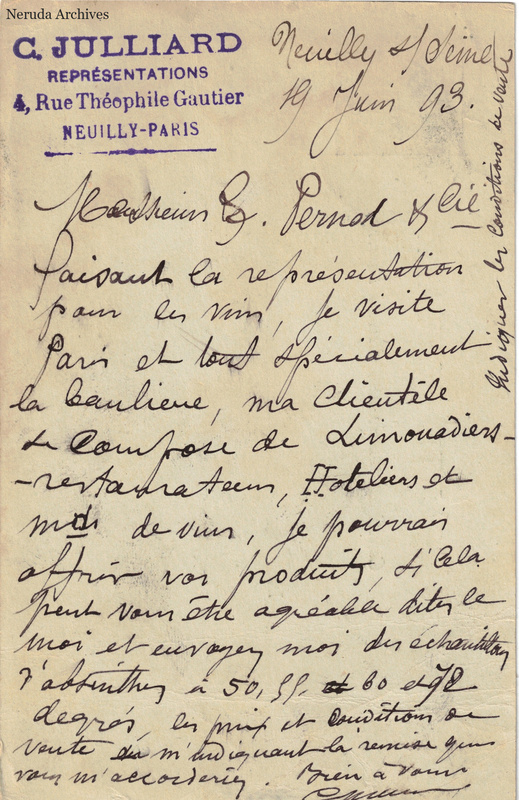 Neruda Archives
C. JULLIARD
REPRÉSENTATIONS
4, Rue Théophile Gautier
NEUILLY-PARIS
Neuilly s/ Seine
19 Juin 93.
Messieurs E. Pernod & Cie
faisant la représentation
pour les vins, je visite
Paris et tout spécialement
la banlieue, ma clientèle
se compose de Limonadiers-
-restaurateurs, Hoteliers et
mds de vins, je pourrais
offrir vos produits, si cela
peut vous être agréable dites le
moi et envoyez moi des échantillons
d'absinthes à 50, 55, et 60 et 72
degrés, les prix et conditions de
vente en m'indiquant la remise que
vous m'accorderiez. Bien à vous
Indiquer les conditions de vente